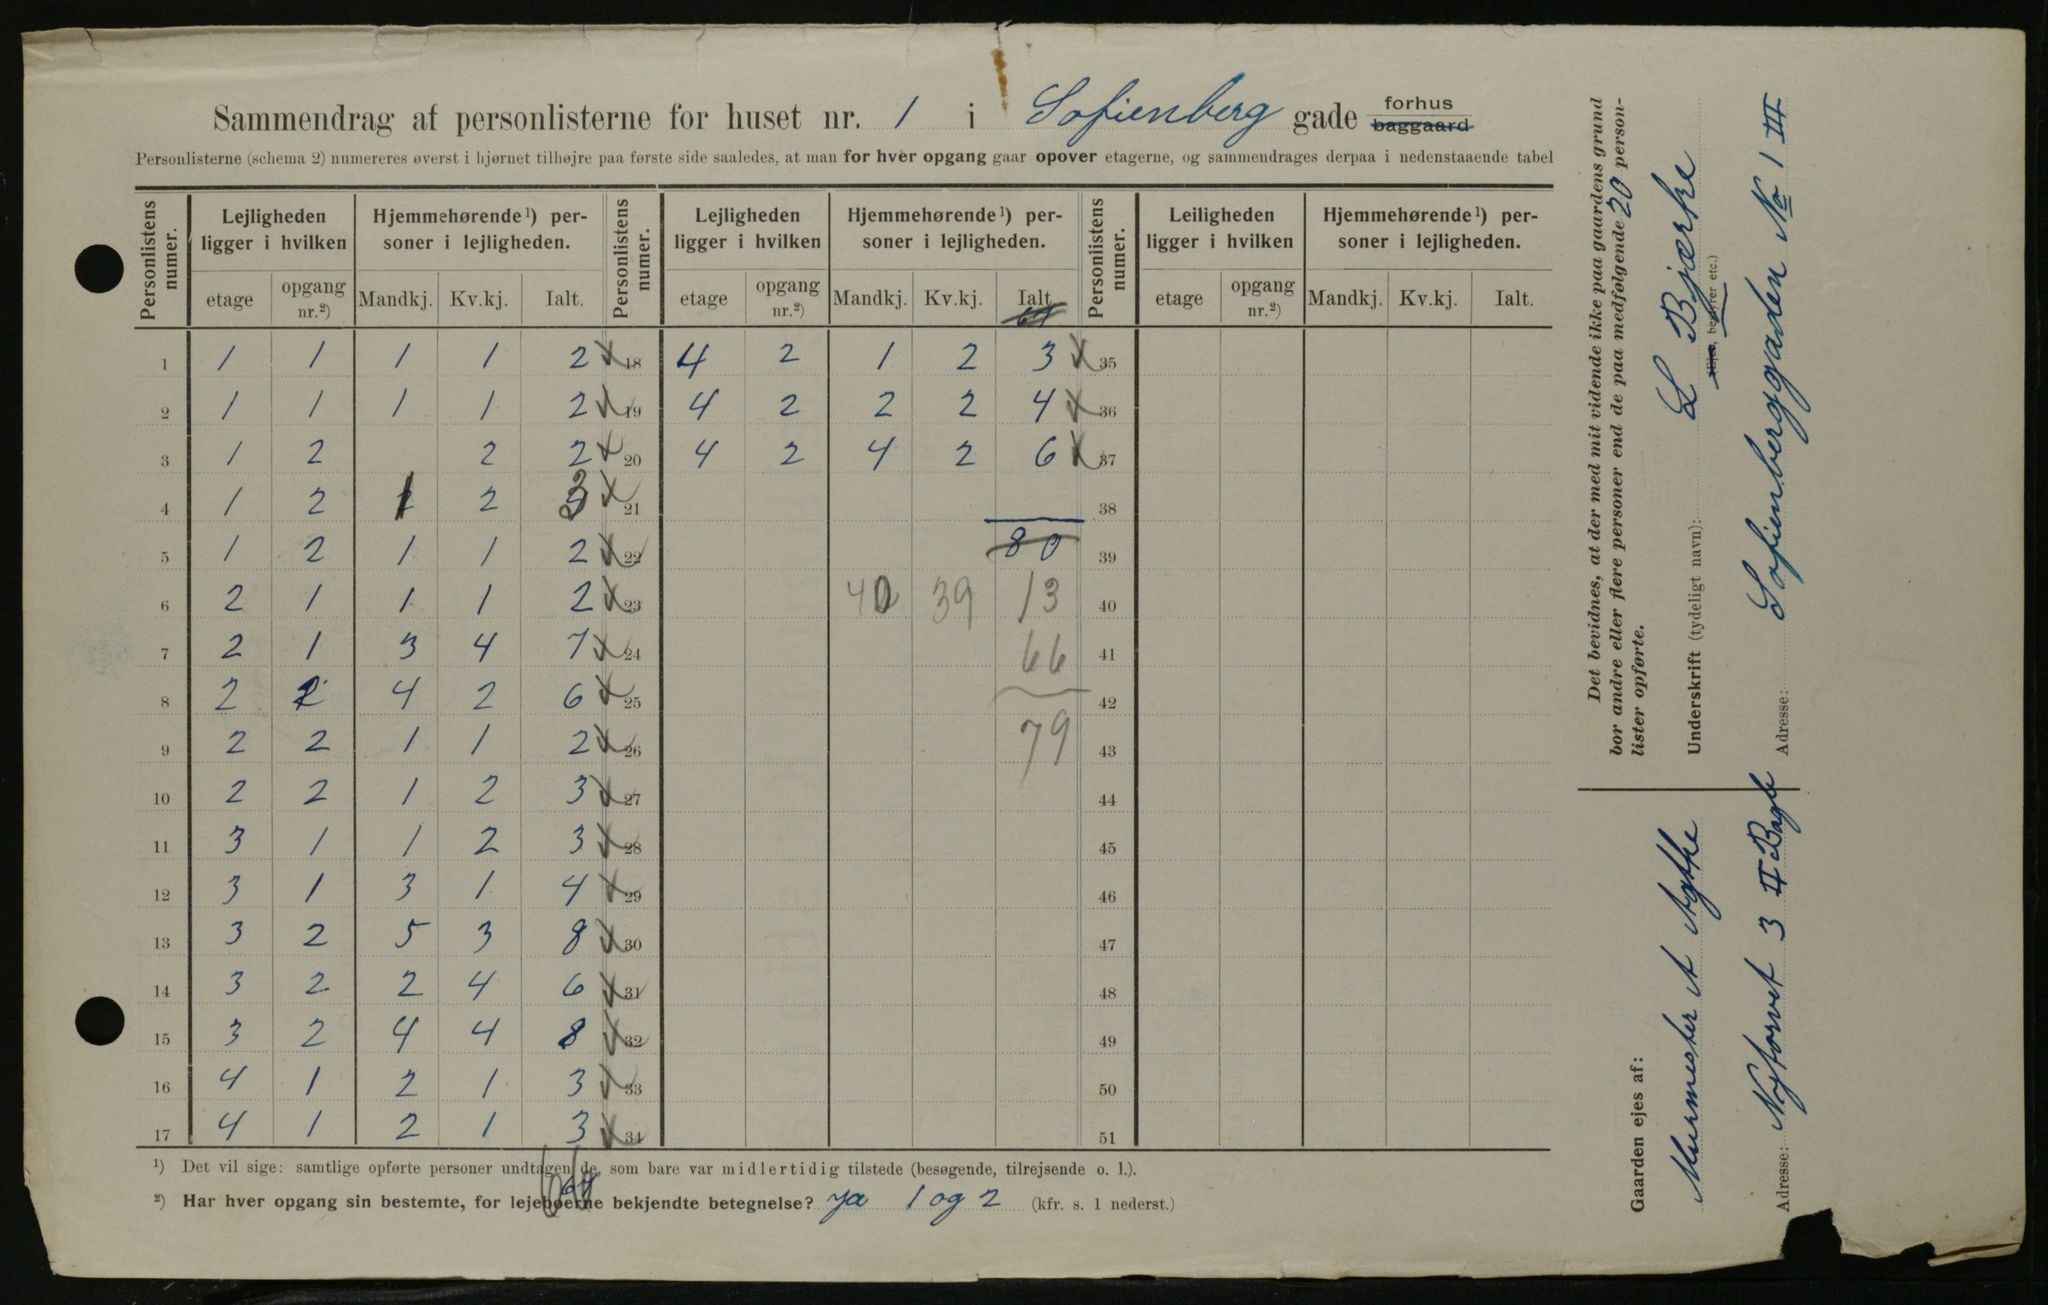 Sammendrag af personlisterne for huset nr. 1 i Sofienberg gade forhus baggaard
Personlisterne (schema 2) numereres øverst i hjørnet tilhøjre paa første side saaledes, at man for hver opgang gaar opover etagerne, og sammendrages derpaa i nedenstaaende tabel
Personlistens numer. | Lejligheden ligger i hvilken | Hjemmehørende ¹) personer i lejligheden. | Personlistens numer. | Lejligheden ligger i hvilken | Hjemmehørende ¹) personer i lejligheden. | Personlistens numer. | Leiligheden ligger i hvilken | Hjemmehørende ¹) personer i lejligheden.
etage | opgang nr.²) | Mandkj. | Kv.kj. | Ialt. | etage | opgang nr.²) | Mandkj. | Kv.kj. | Ialt. | etage | opgang nr.²) | Mandkj. | Kv.kj. | Ialt.
67
1 | 1 | 1 | 1 | 1 | 2 | 18 | 4 | 2 | 1 | 2 | 3 | 35
2 | 1 | 1 | 1 | 1 | 2 | 19 | 4 | 2 | 2 | 2 | 4 | 36
3 | 1 | 2 | | 2 | 2 | 20 | 4 | 2 | 4 | 2 | 6 | 37
4 | 1 | 2 | 1 | 2 | 3 | 21 | | | | | | 38
5 | 1 | 2 | 1 | 1 | 2 | 22 | | | | | 80 | 39
6 | 2 | 1 | 1 | 1 | 2 | 23 | | | 40 | 39 | 13 | 40
7 | 2 | 1 | 3 | 4 | 7 | 24 | | | | | 66 | 41
8 | 2 | 2 | 4 | 2 | 6 | 25 | | | | | | 42
9 | 2 | 2 | 1 | 1 | 2 | 26 | | | | | 79 | 43
10 | 2 | 2 | 1 | 2 | 3 | 27 | | | | | | 44
11 | 3 | 1 | 1 | 2 | 3 | 28 | | | | | | 45
12 | 3 | 1 | 3 | 1 | 4 | 29 | | | | | | 46
13 | 3 | 2 | 5 | 3 | 8 | 30 | | | | | | 47
14 | 3 | 2 | 2 | 4 | 6 | 31 | | | | | | 48
15 | 3 | 2 | 4 | 4 | 8 | 32 | | | | | | 49
16 | 4 | 1 | 2 | 1 | 3 | 33 | | | | | | 50
17 | 4 | 1 | 2 | 1 | 3 | 34 | | | | | | 51
¹) Det vil sige: samtlige opførte personer undtagen de, som bare var midlertidig tilstede (besøgende, tilrejsende o. l.).
66 67
²) Har hver opgang sin bestemte, for lejeboerne bekjendte betegnelse? ja 1 og 2 (kfr. s. 1 nederst.)
Det bevidnes, at der med mit vidende ikke paa gaardens grund
bor andre eller flere personer end de paa medfølgende 20 person-
lister opførte.
Underskrift (tydeligt navn): L Bjærke
(Ejer, bestyrer etc.)
Adresse: Sofienberggaden No 1 III
Gaarden ejes af:
Murmester A
Adresse: Nytorvet 3 II